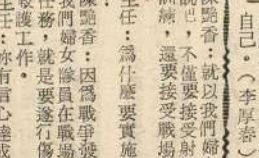 自己。（李厚春）
陳艷香：就以我們婦
說吧，不僅要接受射
訓練，還要接受戰場
主任：爲什麼要實施
陳艷香：因爲戰爭發
我們婦女隊員在戰場
任務，就是要遂行傷
救護工作。
主任：妳有信心達成